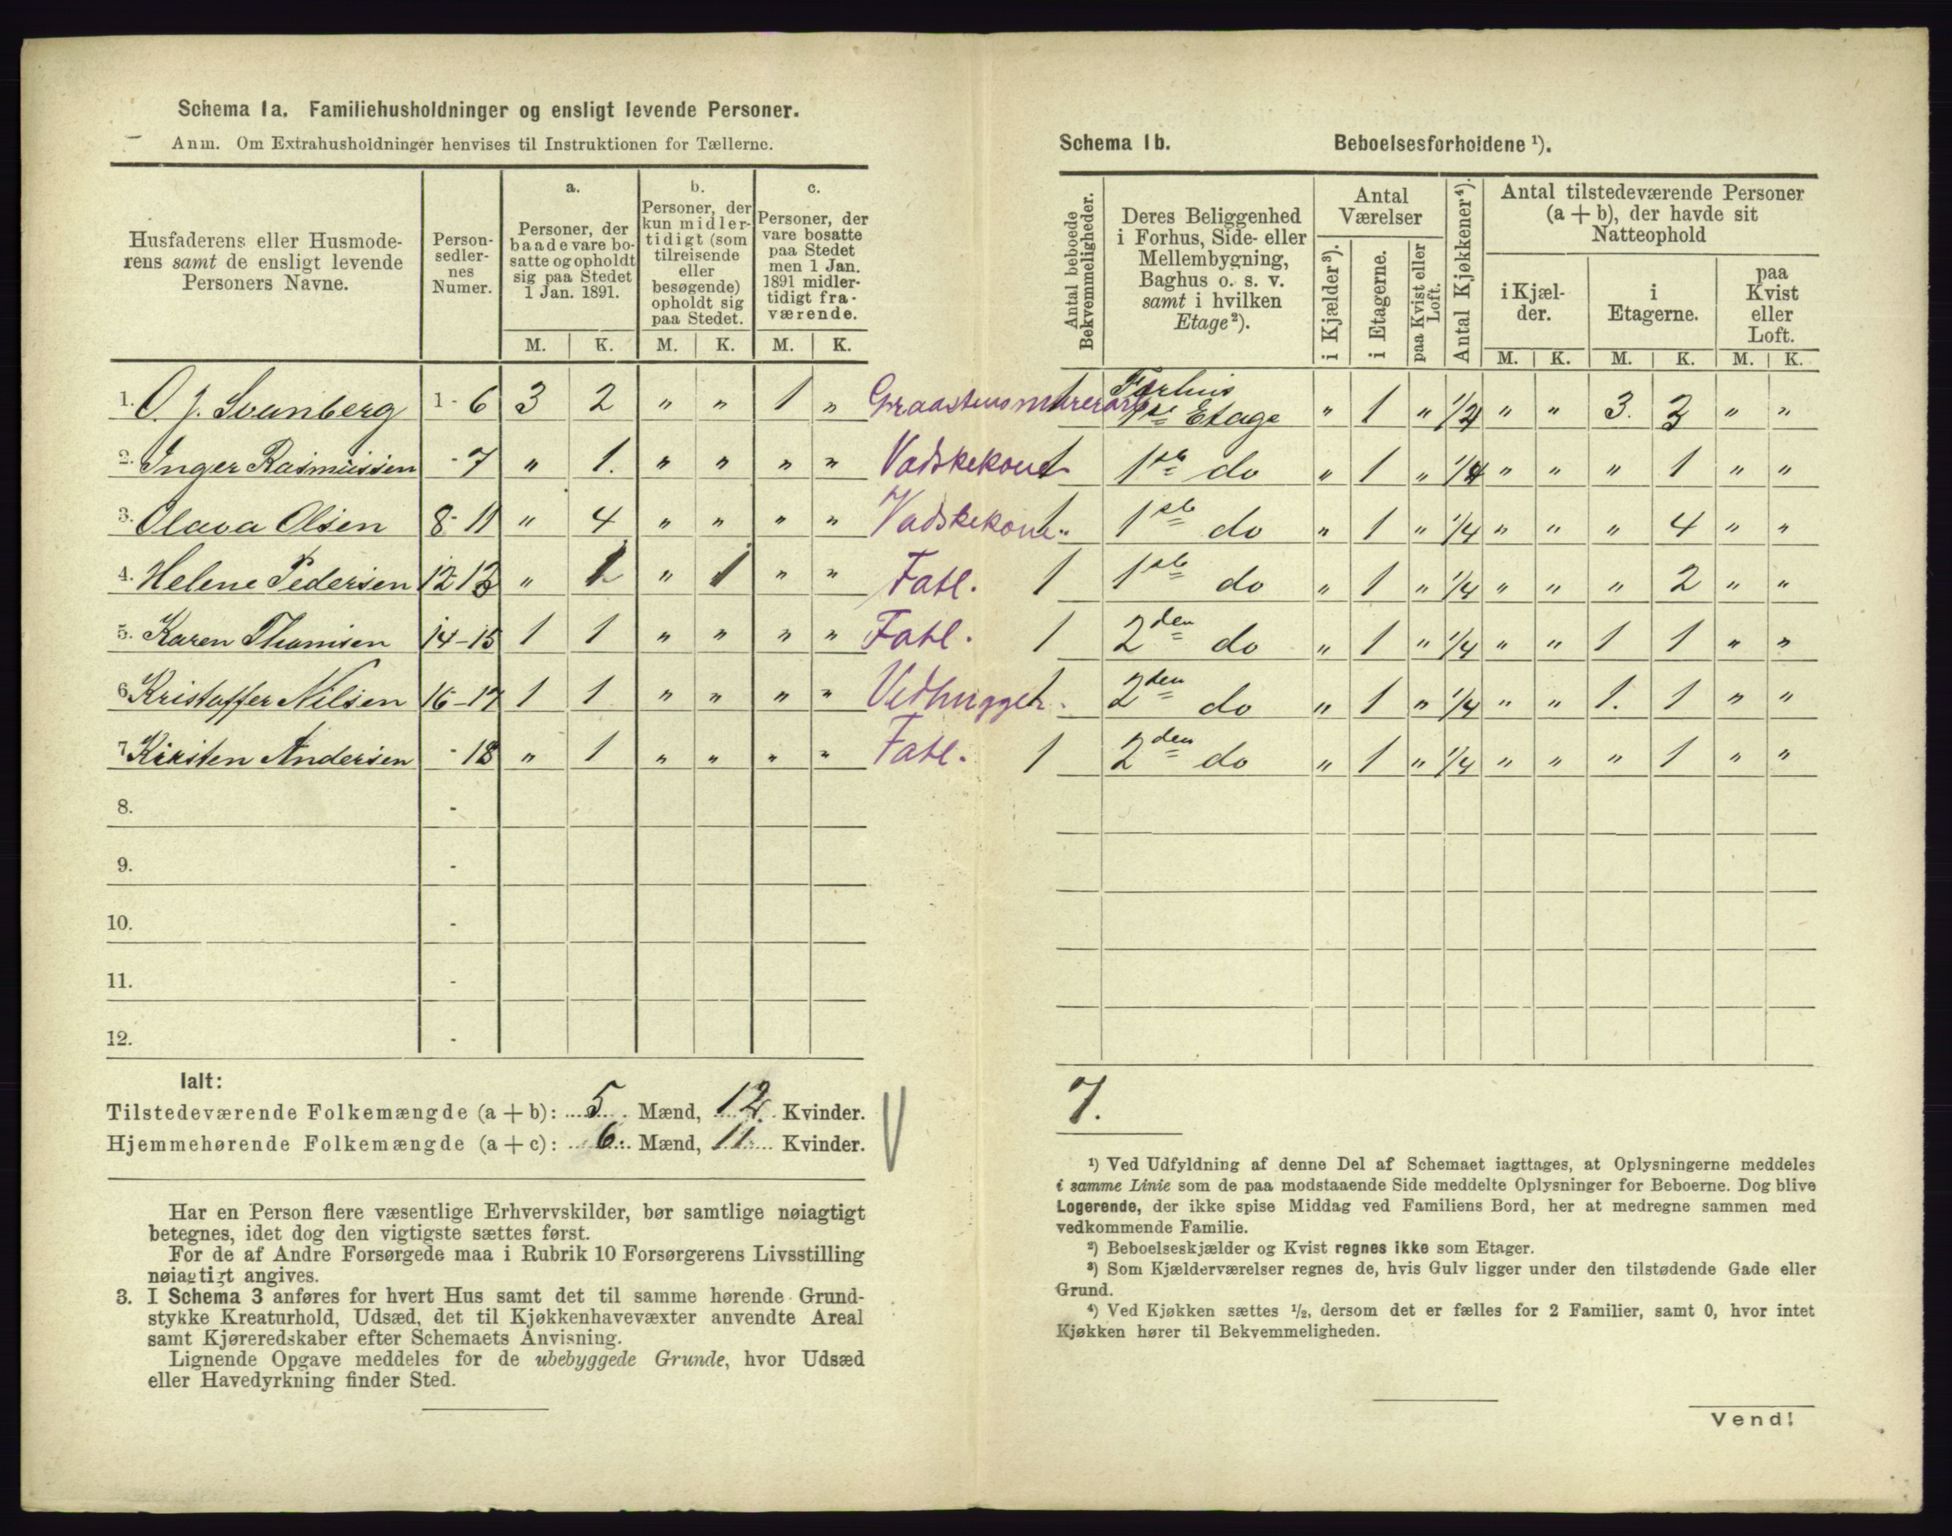 Schema 1a. Familiehusholdninger og ensligt levende Personer.
Anm. Om Extrahusholdninger henvises til Instruktionen for Tællerne.
Husfaderens eller Husmoderens samt de ensligt levende Personers Navne.
Personsedlernes Numer.
a. Personer, der baade vare bosatte og opholdt sig paa Stedet 1 Jan. 1891.
b. Personer, der kun midlertidigt (som tilreisende eller besøgende) opholdt sig paa Stedet.
c. Personer, der vare bosatte paa Stedet men 1 Jan. 1891 midlertidigt fraværende.
M. K. M. K. M. K.
1. O. J. Svanberg 1 - 6 3 2 " " 1 "
2. Inger Rasmussen - 7 " 1. " " " "
3. Olava Olsen 8 - 11 " 4 " " " "
4. Helene Pedersen 12-13 " 1 " 1 " "
5. Karen Thomsen 14-15 1 1 " " " "
6. Kristoffer Nilsen 16-17 1 1 " " " "
7. Kirsten Andersen - 18 " 1 " " " "
8. -
9. -
10. -
11. -
12. -
Ialt:
Tilstedeværende Folkemængde (a + b): 5 Mænd, 12 Kvinder.
Hjemmehørende Folkemængde (a + c): 6 Mænd, 11 Kvinder.
Har en Person flere væsentlige Erhvervskilder, bør samtlige nøiagtigt
betegnes, idet dog den vigtigste sættes først.
For de af Andre Forsørgede maa i Rubrik 10 Forsørgerens Livsstilling
nøiagtigt angives.
3. I Schema 3 anføres for hvert Hus samt det til samme hørende Grund-
stykke Kreaturhold, Udsæd, det til Kjøkkenhavevæxter anvendte Areal
samt Kjøreredskaber efter Schemaets Anvisning.
Lignende Opgave meddeles for de ubebyggede Grunde, hvor Udsæd
eller Havedyrkning finder Sted.
Schema 1b. Beboelsesforholdene ¹).
Antal beboede Bekvemmeligheder.
Deres Beliggenhed i Forhus, Side- eller Mellembygning, Baghus o. s. v. samt i hvilken Etage ²).
Antal Værelser
i Kjælder ³).
i Etagerne.
paa Kvist eller Loft.
Antal Kjøkkener ⁴).
Antal tilstedeværende Personer (a + b), der havde sit Natteophold
i Kjælder.
i Etagerne.
paa Kvist eller Loft.
M. K. M. K. M. K.
Graastensmurerarb 1 Forhus 1ste Etage " 1 " 1/4 " " 3. 3 " "
Vadskekone 1 1ste do " 1 " 1/4 " " " 1 " "
Vadskekone 1 1ste do " 1 " 1/4 " " " 4 " "
Fatl. 1 1ste do " 1 " 1/4 " " " 2 " "
Fatl. 1 2den do " 1 " 1/4 " " 1 1 " "
Vedhugger 1 2den do " 1 " 1/4 " " 1. 1 " "
Fatl. 1 2den do " 1 " 1/4 " " " 1 " "
7.
¹) Ved Udfyldning af denne Del af Schemaet iagttages, at Oplysningerne meddeles
i samme Linie som de paa modstaaende Side meddelte Oplysninger for Beboerne. Dog blive
Logerende, der ikke spise Middag ved Familiens Bord, her at medregne sammen med
vedkommende Familie.
²) Beboelseskjælder og Kvist regnes ikke som Etager.
³) Som Kjælderværelser regnes de, hvis Gulv ligger under den tilstødende Gade eller
Grund.
⁴) Ved Kjøkken sættes ½, dersom det er fælles for 2 Familier, samt 0, hvor intet
Kjøkken hører til Bekvemmeligheden.
Vend!